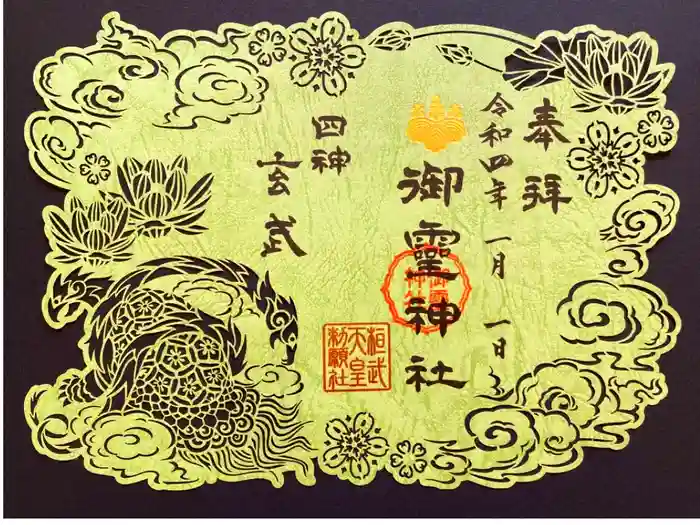 奉拝
令和四年 一月 一日
御靈神社
四神
玄武
相武
天皇
勅願社